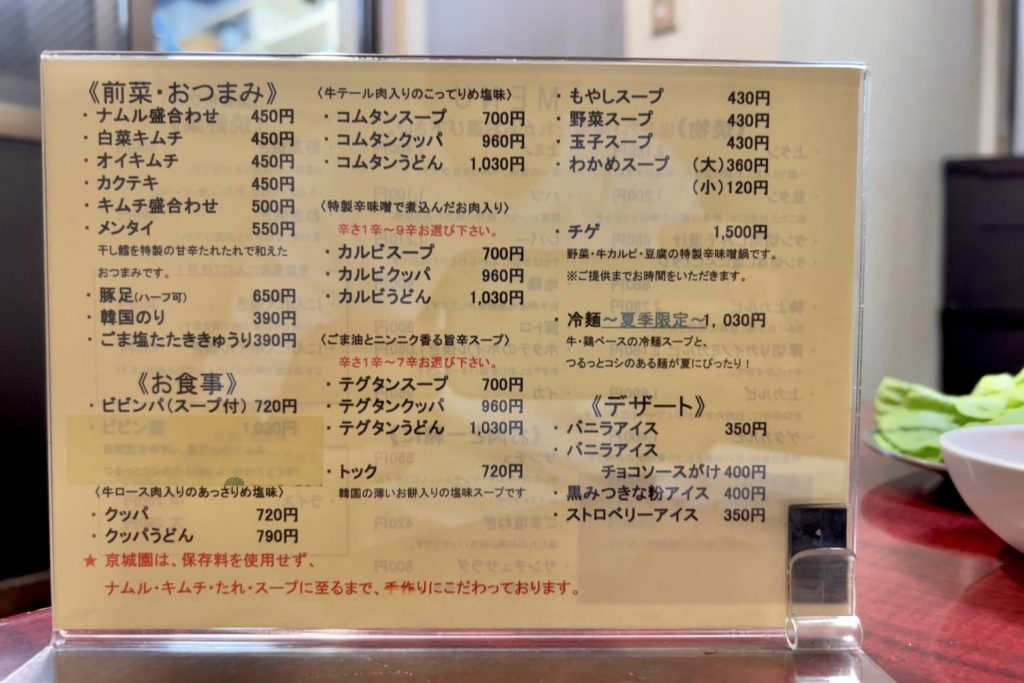 《前菜・おつまみ》
・ナムル盛合わせ 450円
・白菜キムチ 450円
・オイキムチ 450円
・カクテキ 450円
・キムチ盛合わせ 500円
・メンタイ 550円
干し鱈を特製の甘辛たれたれで和えた
おつまみです。
・豚足(ハーフ可) 650円
・韓国のり 390円
・ごま塩たたききゅうり390円
《お食事》
・ビビンパ(スープ付) 720円
・ビビン麺 1,030円
〈牛ロース肉入りのあっさりめ塩味〉
・クッパ 720円
・クッパうどん 790円
〈牛テール肉入りのこってりめ塩味〉
・コムタンスープ 700円
・コムタンクッパ 960円
・コムタンうどん 1,030円
〈特製辛味噌で煮込んだお肉入り〉
辛さ1辛～9辛お選び下さい。
・カルビスープ 700円
・カルビクッパ 960円
・カルビうどん 1,030円
〈ごま油とニンニク香る旨辛スープ〉
辛さ1辛～7辛お選び下さい。
・テグタンスープ 700円
・テグタンクッパ 960円
・テグタンうどん 1,030円
・トック 720円
韓国の薄いお餅入りの塩味スープです
・もやしスープ 430円
・野菜スープ 430円
・玉子スープ 430円
・わかめスープ (大)360円
(小)120円
・チゲ 1,500円
野菜・牛カルビ・豆腐の特製辛味噌鍋です。
※ご提供までお時間をいただきます。
・冷麺～夏季限定～1,030円
牛・鶏ベースの冷麺スープと、
つるっとコシのある麺が夏にぴったり！
《デザート》
・バニラアイス 350円
・バニラアイス
チョコソースがけ 400円
・黒みつきな粉アイス 400円
・ストロベリーアイス 350円
★ 京城園は、保存料を使用せず、
ナムル・キムチ・たれ・スープに至るまで、手作りにこだわっております。